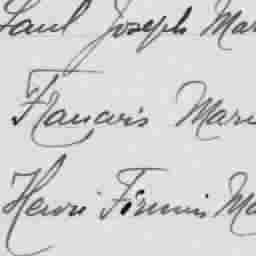 Paul Joseph Mar
Francois Marie
Henri Firmin Ma